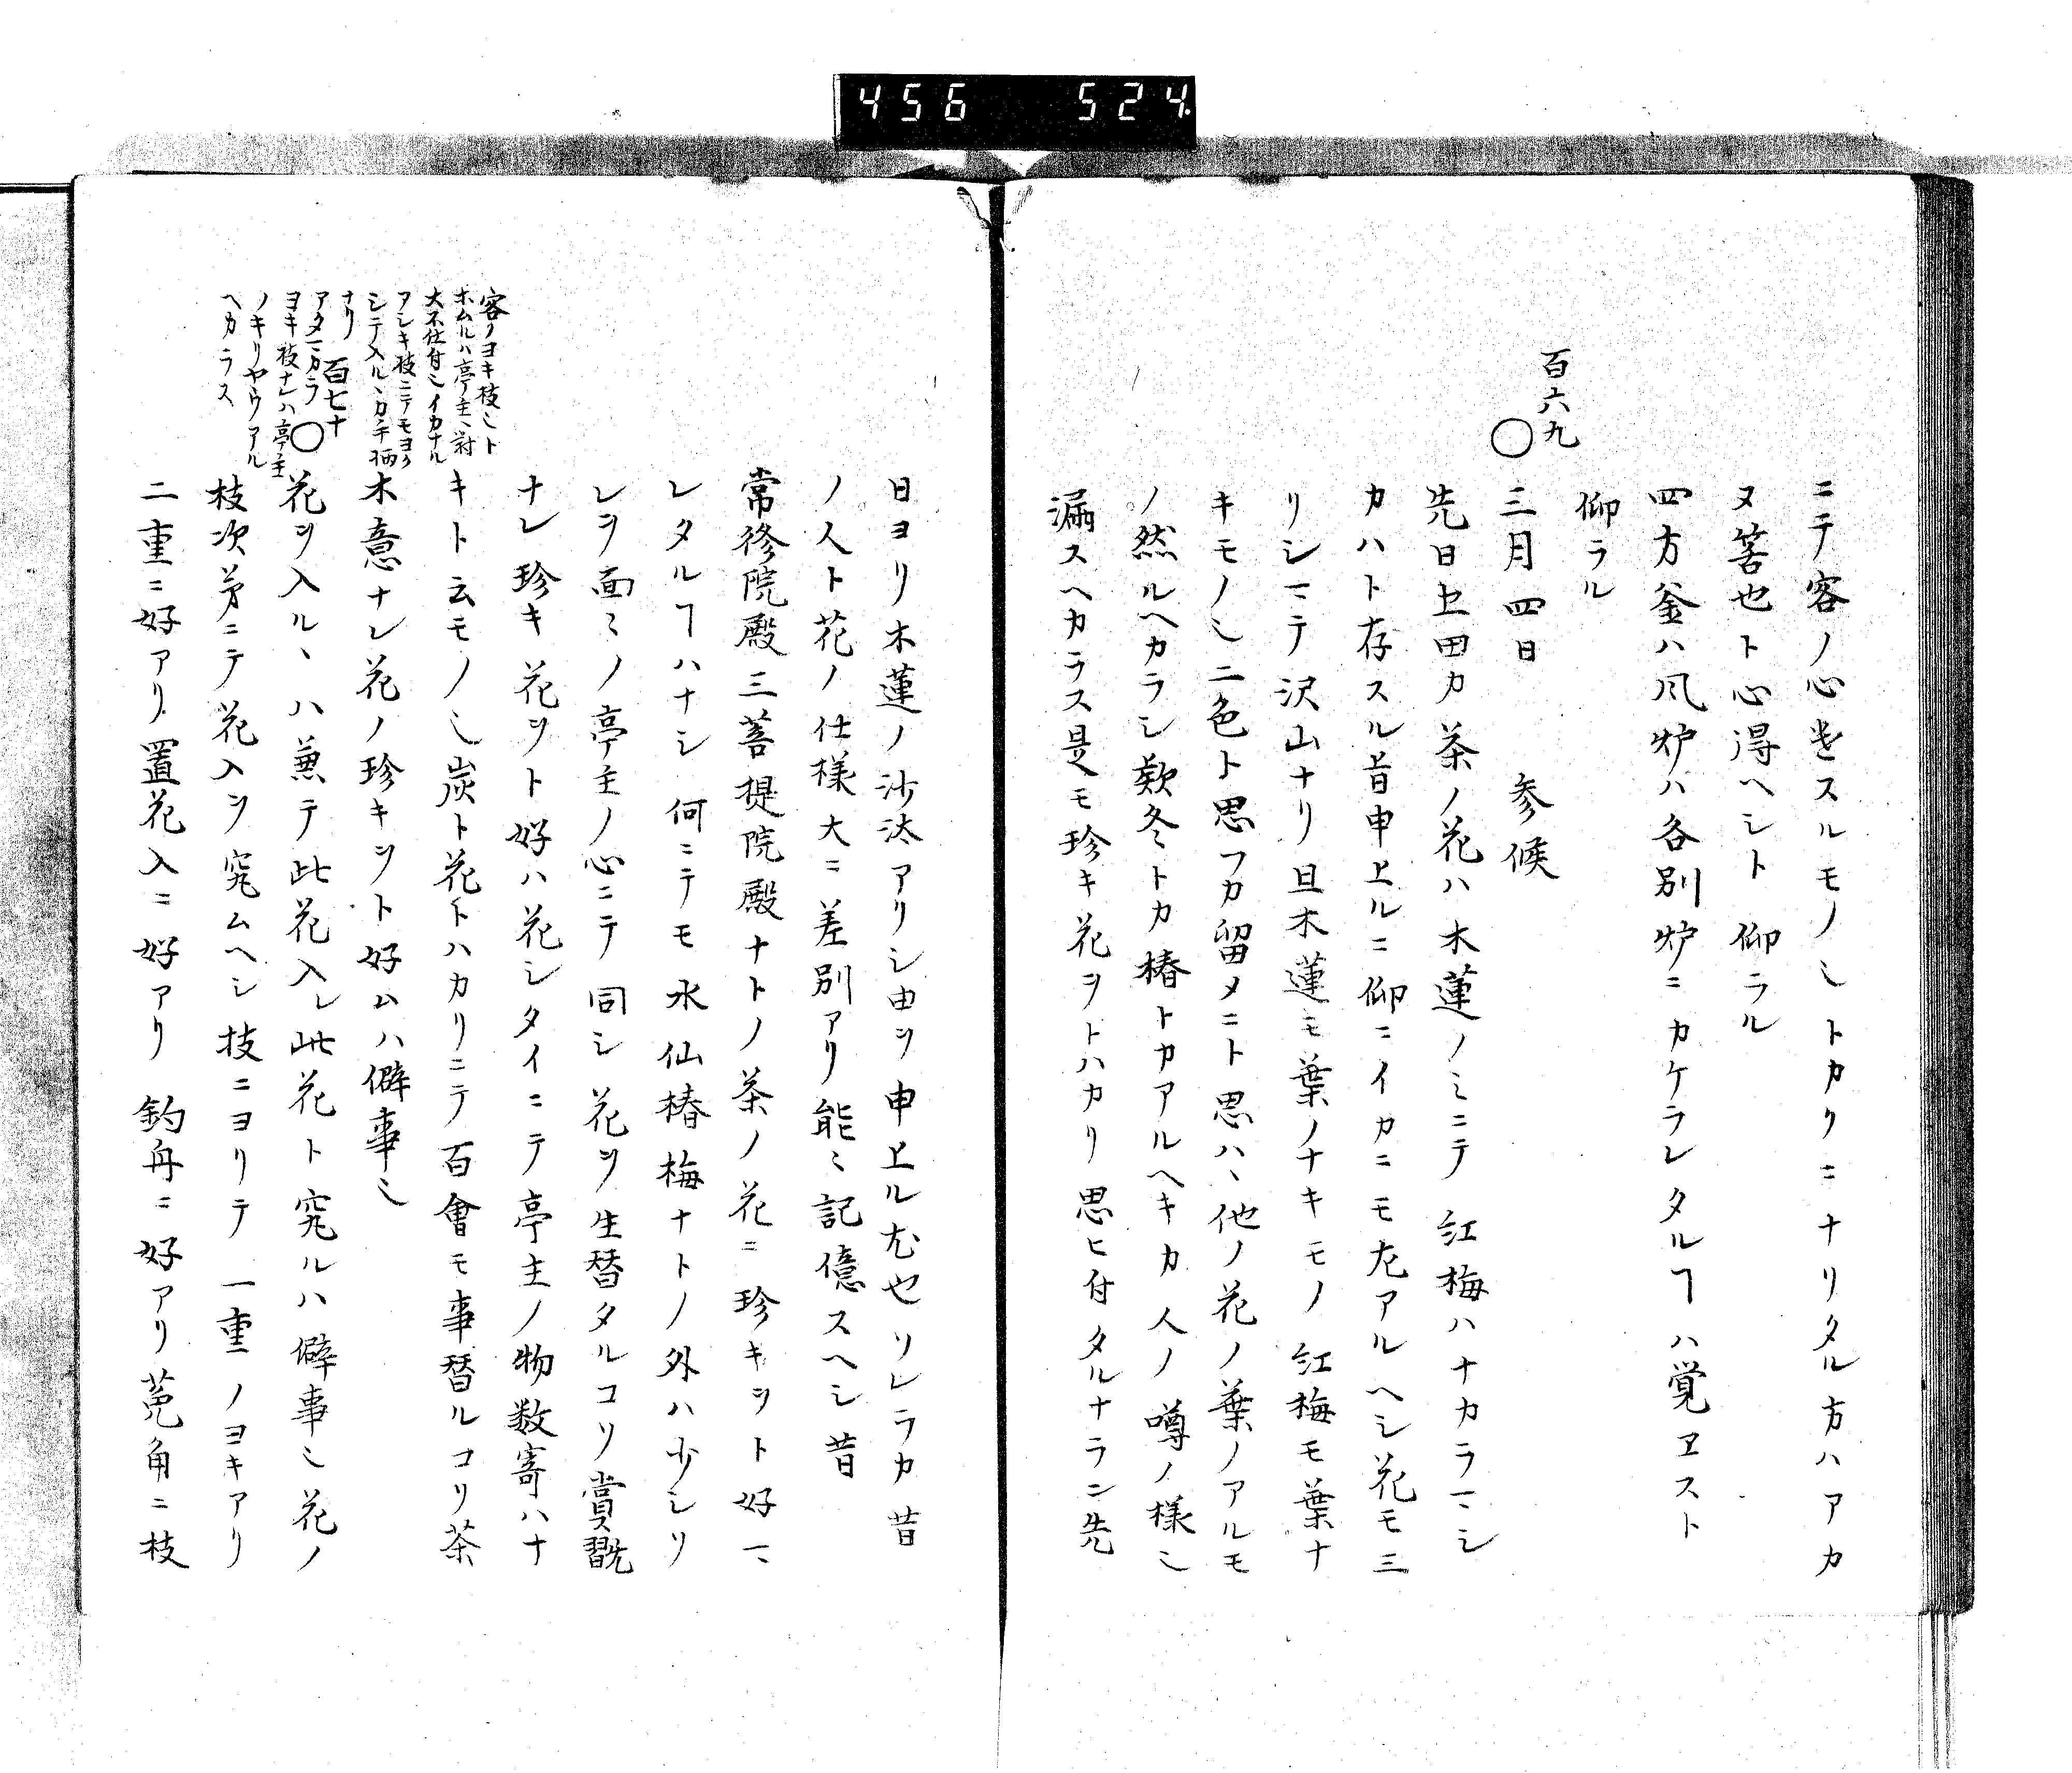 456 524
ニテ客ノ心遣スルモノ〆トカクニナリタル方ハアカ
ヌ筈也ト心得ヘシト 仰ラル
四方釜ハ风炉ハ各別炉ニカケラレタルヿハ覚ヱスト
仰ラル
百六九
○三月四日 参候
先日上田カ茶ノ花ハ木蓮ノミニテ紅梅ハナカラマシ
カハト存スル旨申上ルニ仰ニイカニモ尤アルヘシ花モ三
リシマテ沢山ナリ且木蓮モ葉ノナキモノ紅梅モ葉ナ
キモノ〆二色ト思フカ留メニト思ハヽ他ノ花ノ葉ノアルモ
ノ然ルヘカラン欵冬トカ椿トカアルヘキカ人ノ噂ノ様〆
漏スヘカラス是モ珍キ花ヲトハカリ思ヒ付タルナラン先
日ヨリ木蓮ノ沙汰アリシ由ヲ申上ル尤也ソレラカ昔
ノ人ト花ノ仕様大ニ差別アリ能〻記憶スヘシ昔
常修院殿三菩提院殿ナトノ茶ノ花ニ珍キヲト好マ
レタルヿハナシ何ニテモ水仙椿梅ナトノ外ハ少シソ
レヲ面〻ノ亭主ノ心ニテ同シ花ヲ生替タルコソ賞翫
ナレ珍キ花ヲト好ハ花シタイニテ亭主ノ物数寄ハナ
キト云モノ〆炭ト花トハカリニテ百會モ事替ルコソ茶
本意ナレ花ノ珍キヲト好ムハ僻事〆
客ノヨキ枝〆ト
ホムルハ亭主ヘ対
大不仕付〆イカナル
アシキ枝ニテモヨク
シテ入ルヽカ手柄
ナリ
アタマカラ
ヨキ枝ナレハ亭主
ノキリヤウアル
ヘカラス
百七十
○花ヲ入ルヽハ兼テ此花入レ此花ト究ルハ僻事〆花ノ
枝次第ニテ花入ヲ究ムヘシ枝ニヨリテ一重ノヨキアリ
二重ニ好アリ置花入ニ好アリ釣舟ニ好アリ菟角ニ枝